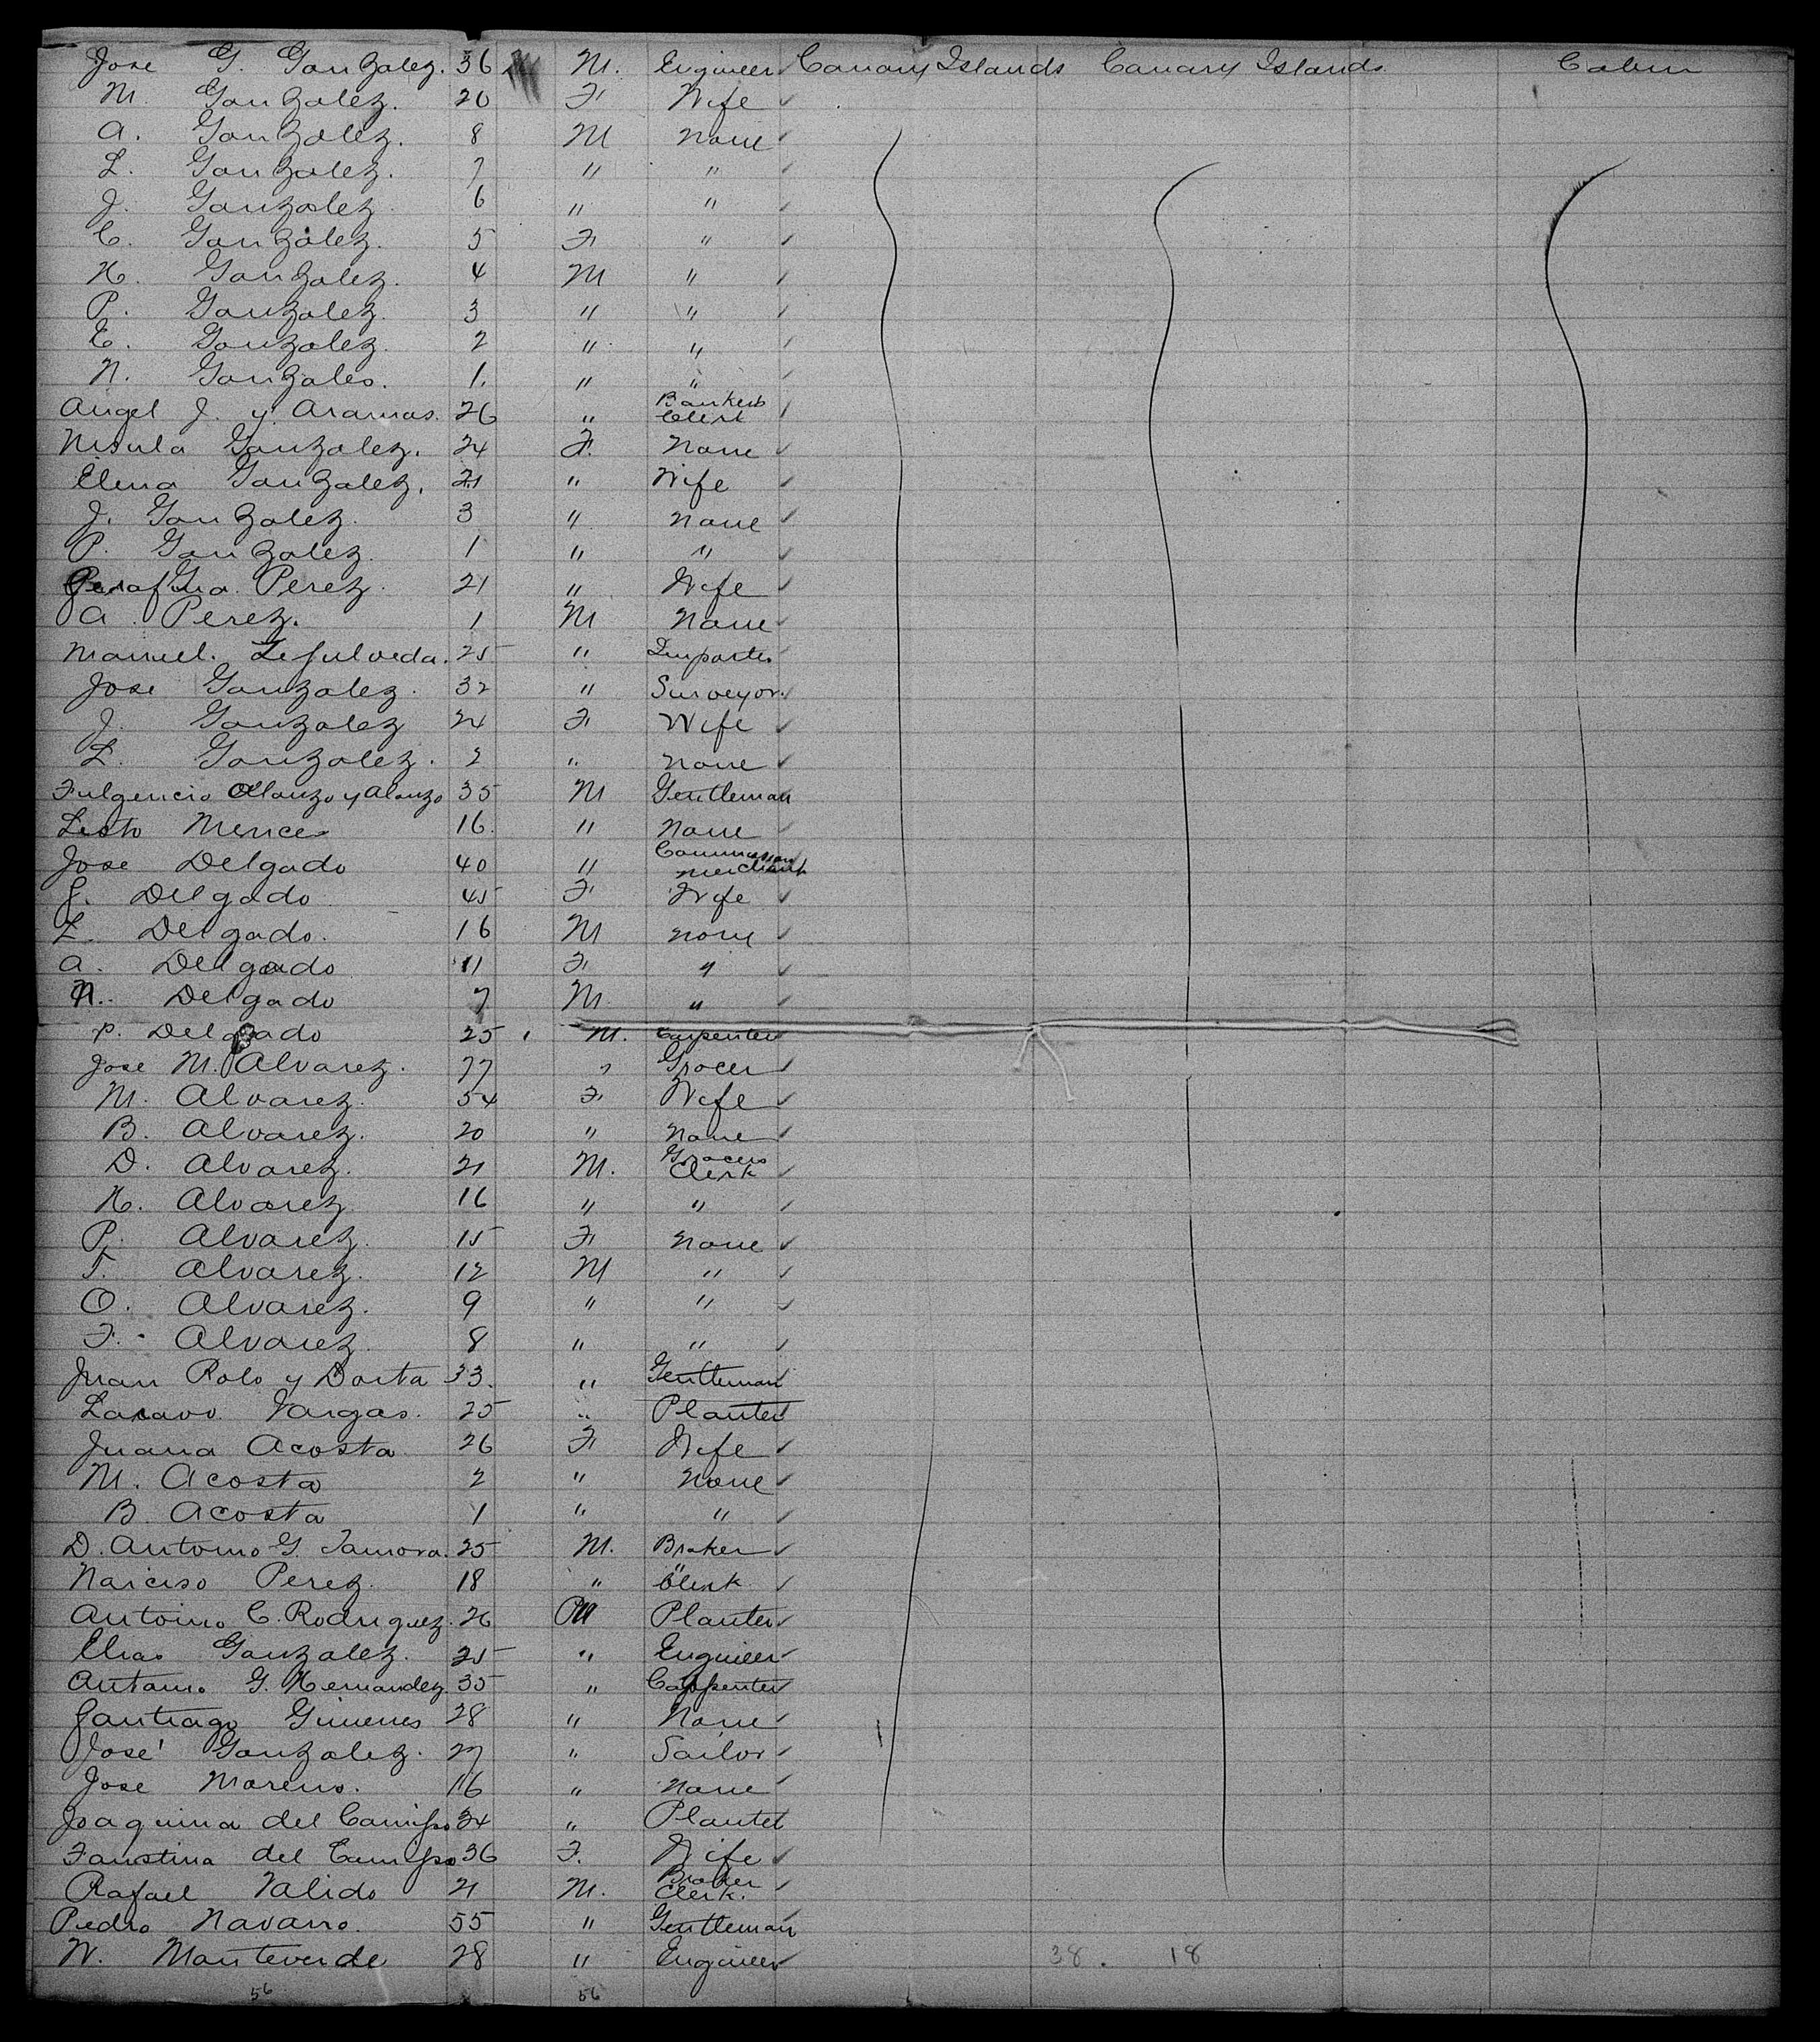 Jose G. Gonzalez. 36 M. Engineer Canary Islands Canary Islands Cabin
M. Gonzalez. 20 F Wife
A. Gonzalez. 8 M None
L. Gonzalez. 7 " "
J. Gonzalez. 6 " "
C. Gonzalez. 5 F "
H. Gonzalez. 4 M "
P. Gonzalez. 3 " "
E. Gonzalez. 2 " "
N. Gonzales. 1. " "
Angel J. y Aramas. 26 " Bankers Clerk
Gonzalez. 24 F. None
Elena Gonzalez. 21 " Wife
J. Gonzalez. 3 " None
P. Gonzalez. 1 " "
Perez. 21 " Wife
A. Perez. 1 M None
Manuel. Sepulveda. 25 " Importer
Jose Gonzalez. 32 " Surveyor.
J. Gonzalez 24 F Wife
L. Gonzalez. 2 " None
Fulgencio Alonzo y Alonzo 35 M Gentleman
16. " None
Jose Delgado 40 " Commission Merchant
J. Delgado 45 F Wife
L. Delgado. 16 M None
A. Delgado 11 F "
N. Delgado 7 M. "
P. Delgado 25 M. Carpenter
Jose M. Alvarez. 77 " Grocer
M. Alvarez. 54 F Wife
B. Alvarez. 20 " None
D. Alvarez. 21 M. Grocers Clerk
H. Alvarez 16 " "
P. Alvarez. 15 F None
T. Alvarez. 12 M "
O. Alvarez. 9 " "
F. Alvarez 8 " "
Juan Rolo y Dorta 33. " Gentleman
Vargas. 25 " Planter
Juana Acosta 26 F Wife
M. Acosta 2 " None
B. Acosta 1 " "
D. Antonio G. 25 M. Broker
Narciso Perez. 18 " " Clerk
Antonio C. Rodriguez. 26 M Planter
Elias Gonzalez. 25 " Engineer
Antonio G. Hernandez 35 " Carpenter
Santiago Gimenes 28 " None
José Gonzalez. 27 " Sailor
Jose Moreno. 16 " None
Joaquina del Campo 34 " Planter
Faustina del Campo 36 F. Wife
Rafael Valido 21 M. Broker Clerk.
Pedro Navarro. 55 " Gentleman
W. Monteverde 28 " Engineer 38. 18
56 56